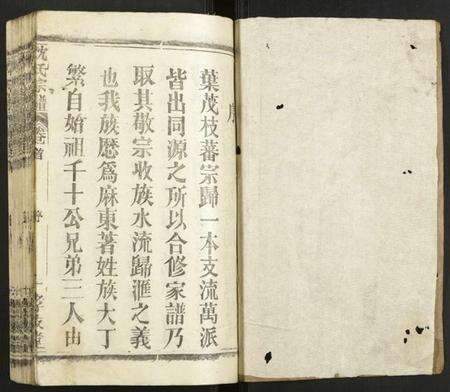 序
葉茂枝蕃宗歸一本支流萬派
皆出同源之所以合修家譜乃
取其敬宗收族水流歸滙之義
也我族歷爲麻東著姓族大丁
繁自始祖千十公兄弟三人由
沈氏宗譜
卷首
序